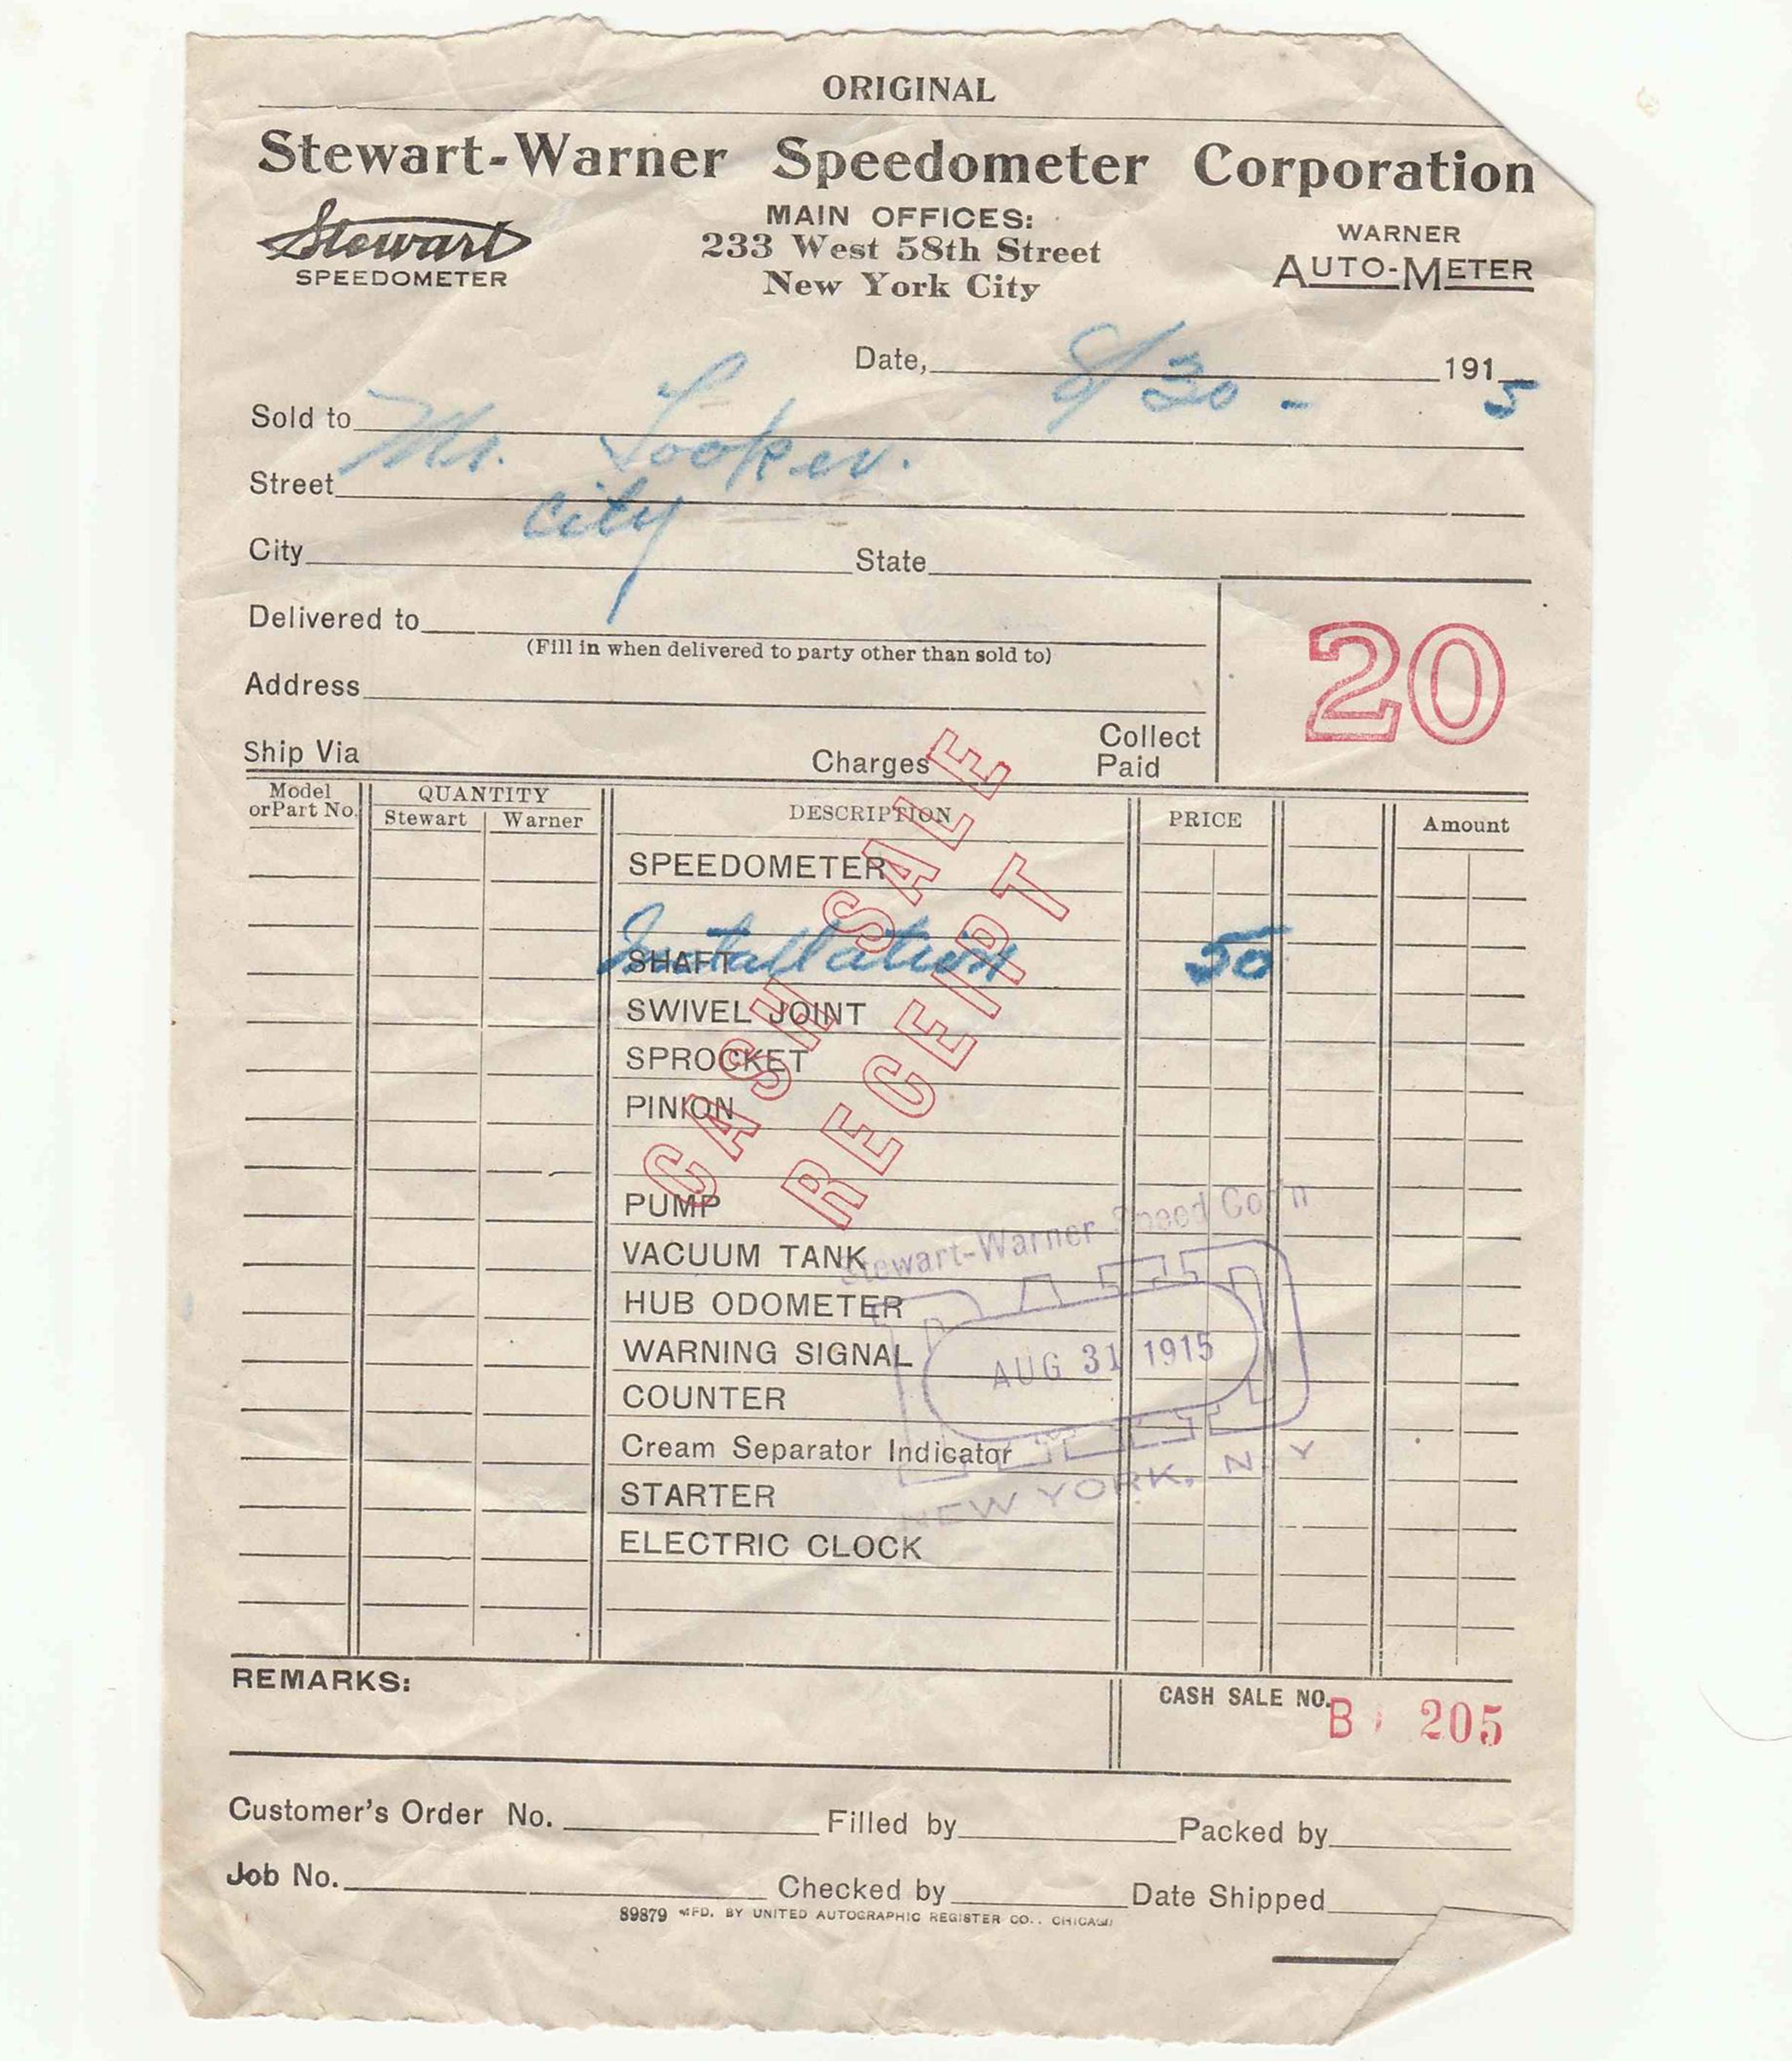 ORIGINAL
Stewart-Warner Speedometer Corporation
Stewart
SPEEDOMETER
MAIN OFFICES:
233 West 58th Street
New York City
WARNER
AUTO-METER
Date, 8/30 - 1915
Sold to Mr. Tooker.
Street
city
City State
Delivered to
(Fill in when delivered to party other than sold to)
Address
20
Ship Via Charges Collect
Paid
Model
or Part No. QUANTITY DESCRIPTION PRICE Amount
Stewart Warner
CASH SALE
RECEIPT
SPEEDOMETER
Installation 50
SHAFT
SWIVEL JOINT
SPROCKET
PINION
PUMP
VACUUM TANK
HUB ODOMETER
WARNING SIGNAL
COUNTER
Cream Separator Indicator
STARTER
ELECTRIC CLOCK
Stewart-Warner Speed Cor'n
AUG 31 1915
NEW YORK, N.Y
REMARKS:
CASH SALE NO. B 205
Customer's Order No. Filled by Packed by
Job No. Checked by Date Shipped
89879 MFD. BY UNITED AUTOGRAPHIC REGISTER CO., CHICAGO